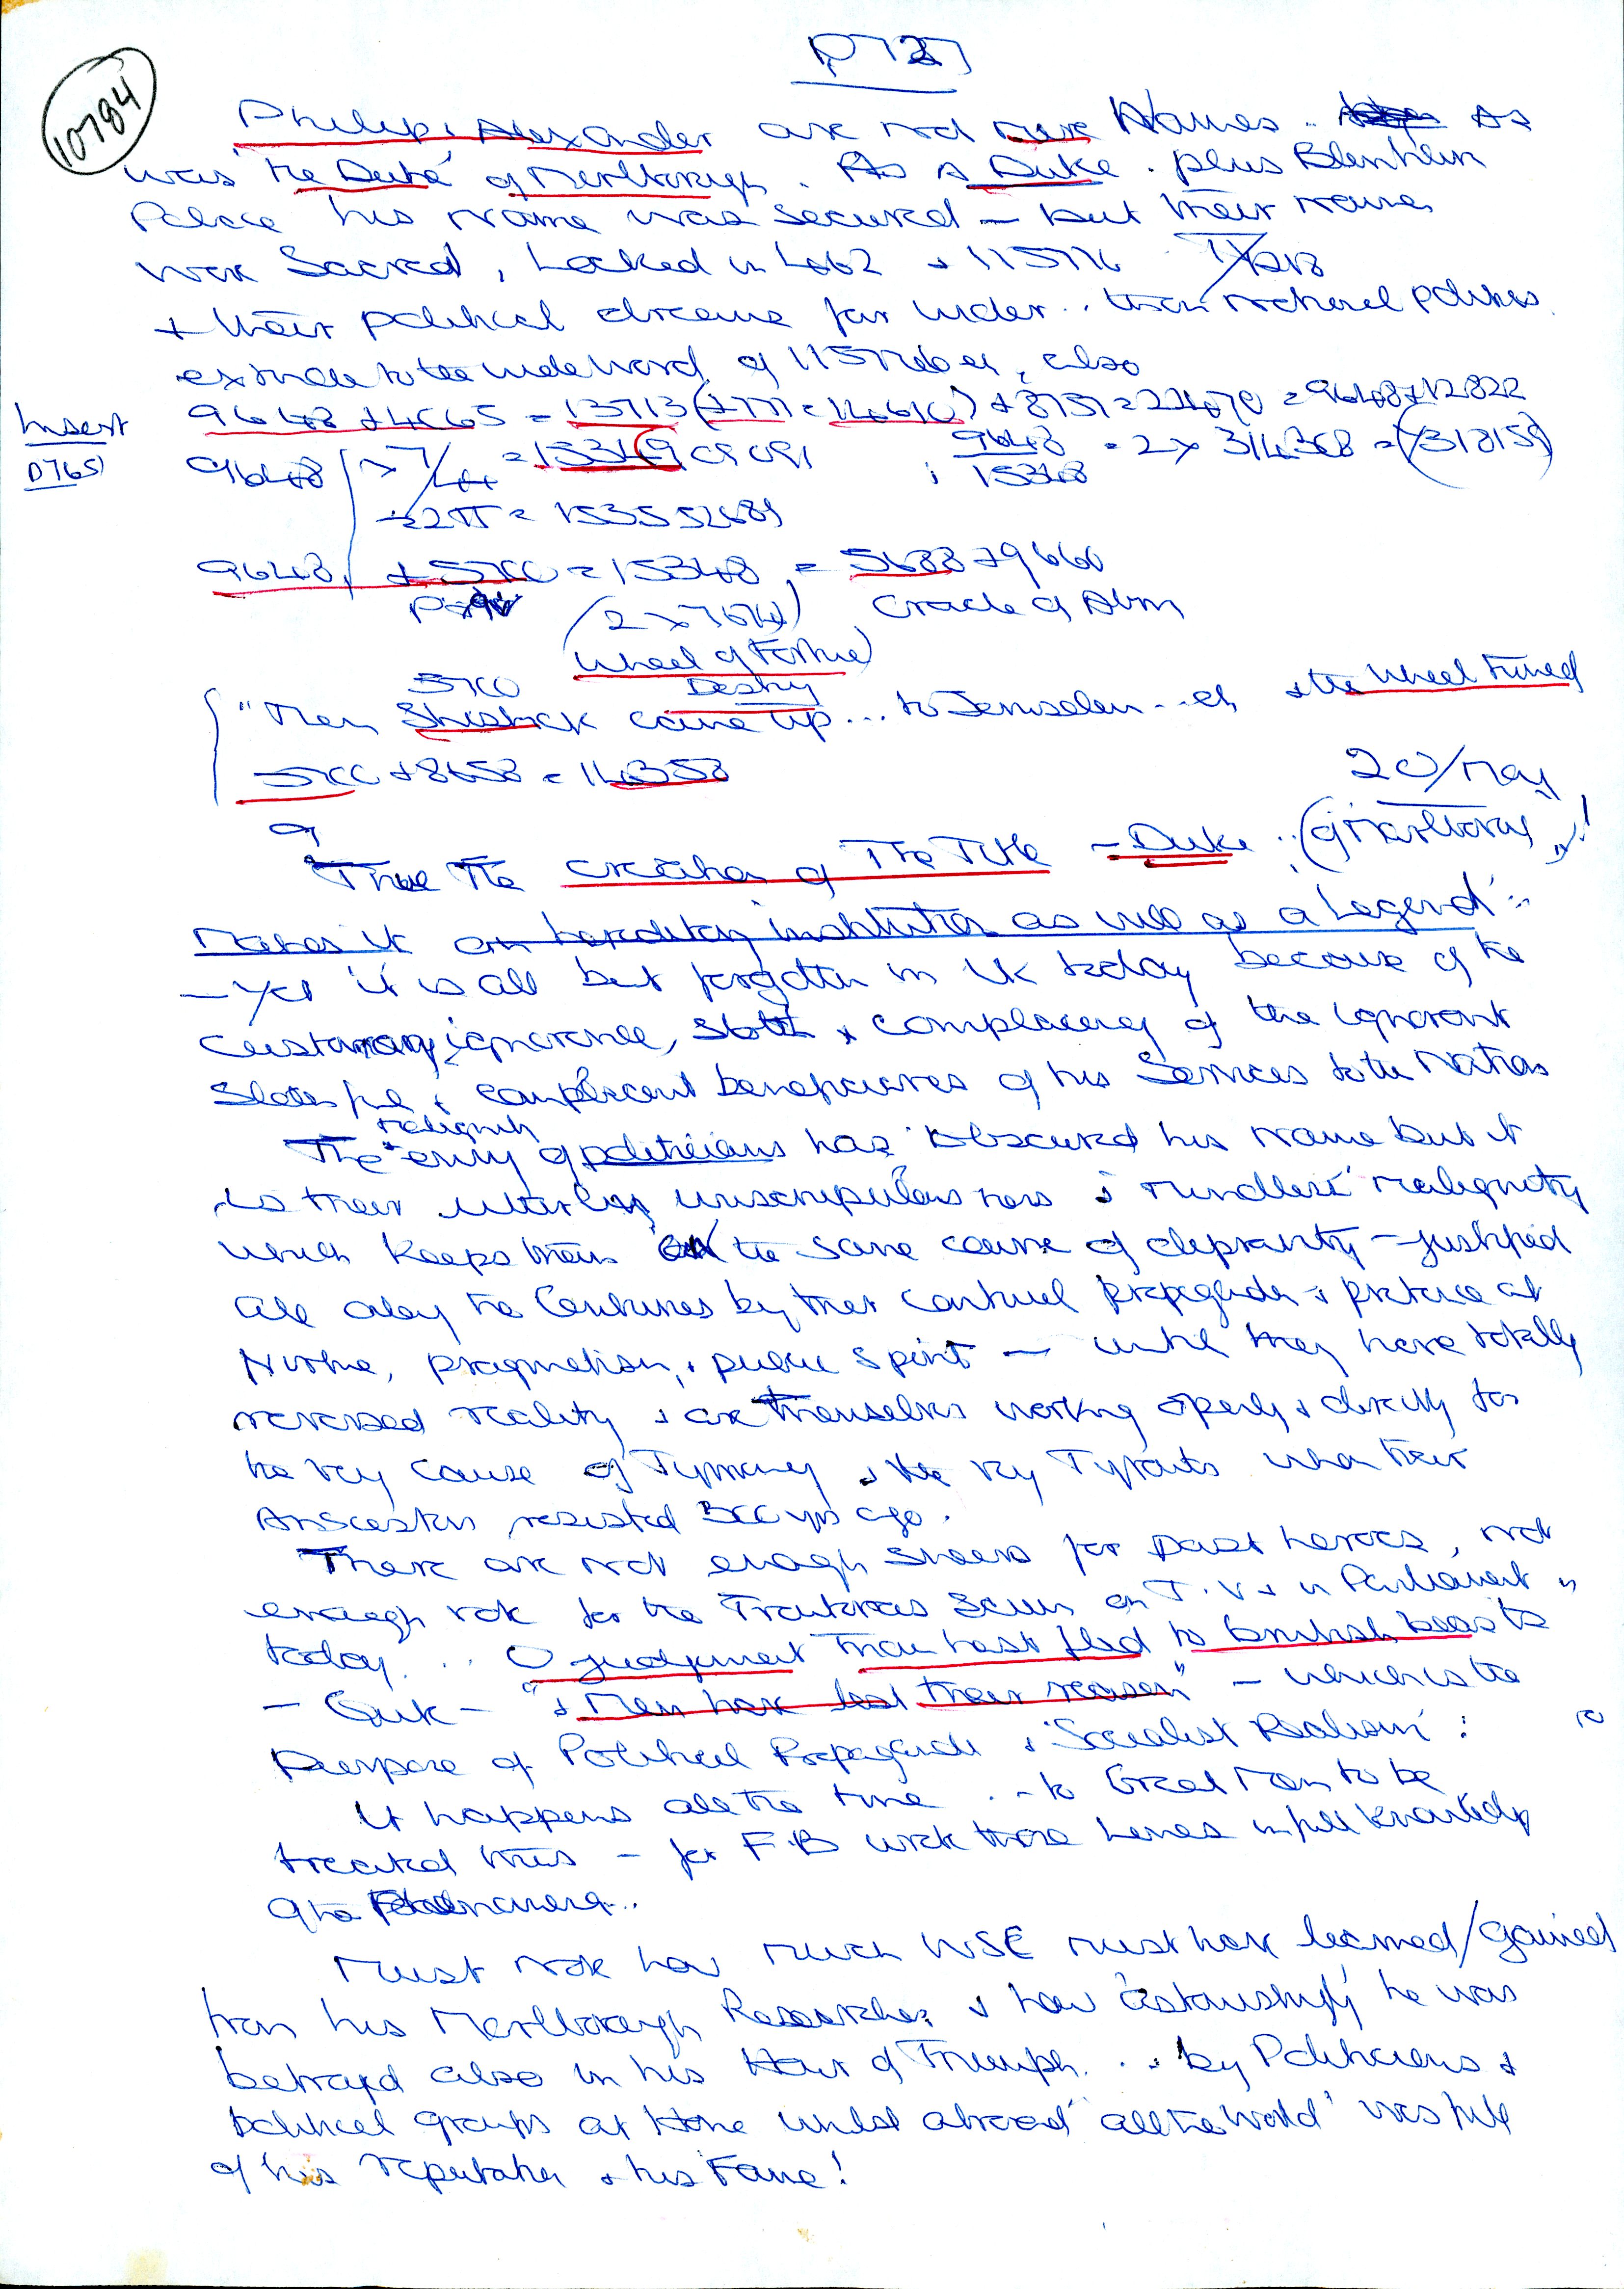 10784
Philip & Alexander are not mere Names. As
was 'the Duke' of Marlborough. As A Duke. plus Blenheim
Palace his name was secured — but their names
were Sacred, Locked in
+ their political dreams far wider.. than national politics
extends to the wide world of also
Insert
D765
9648 + 4065 = 13713 + 8757 = = 9648 + 12822
9648 = 15349 09091 9648 / 15348 = 2 x 314368 = (318159)
÷ 2π = 153552689
9648 + 5700 = 15348 = 568879660
(2 x 7674) Oracle of
Wheel of Fortune)
5700 Destiny
"Then Shishak came up... to Jerusalem & the wheel turned
5700 + 8658 = 14358
20/May
The creation of The Title — Duke .. (of Marlborough)!
Makes it an hereditary institution as well as a Legend'..
— Yet it is all but forgotten in UK today because of the
customary ignorance, sloth & complacency of the ignorant
slothful & complacent beneficiaries of his Services to the Nation
malignity
The envy of politicians has obscured his name but it
is their utterly unscrupulousness & mindless malignity
which keeps them on the same course of depravity — justified
all along the Centuries by their continual propaganda & pretence at
Virtue, pragmatism, & public spirit — until they have totally
reversed reality & are themselves working openly & directly for
the very cause of Tyranny & the very Tyrants whom their
Ancestors resisted 300 yrs ago.
There are not enough sneers for past heroes, not
enough rok for the Traitorous Scum on T.V & in Parliament
today... O judgment Thou hast fled to brutish beasts
— Quk — "& Men have lost their reason" — which is the
Purpose of Political Propaganda & 'Socialist Realism':
It happens all the time .. to Great Men to be
treated thus — for F.B wrote those lines in full knowledge
of the
Must note how much WSC must have learned/gained
from his Marlborough Researches & how 'astonishingly' he was
betrayed also in his Hour of Triumph... by Politicians &
political groups at Home whilst abroad 'all the World' was full
of his reputation & his Fame!